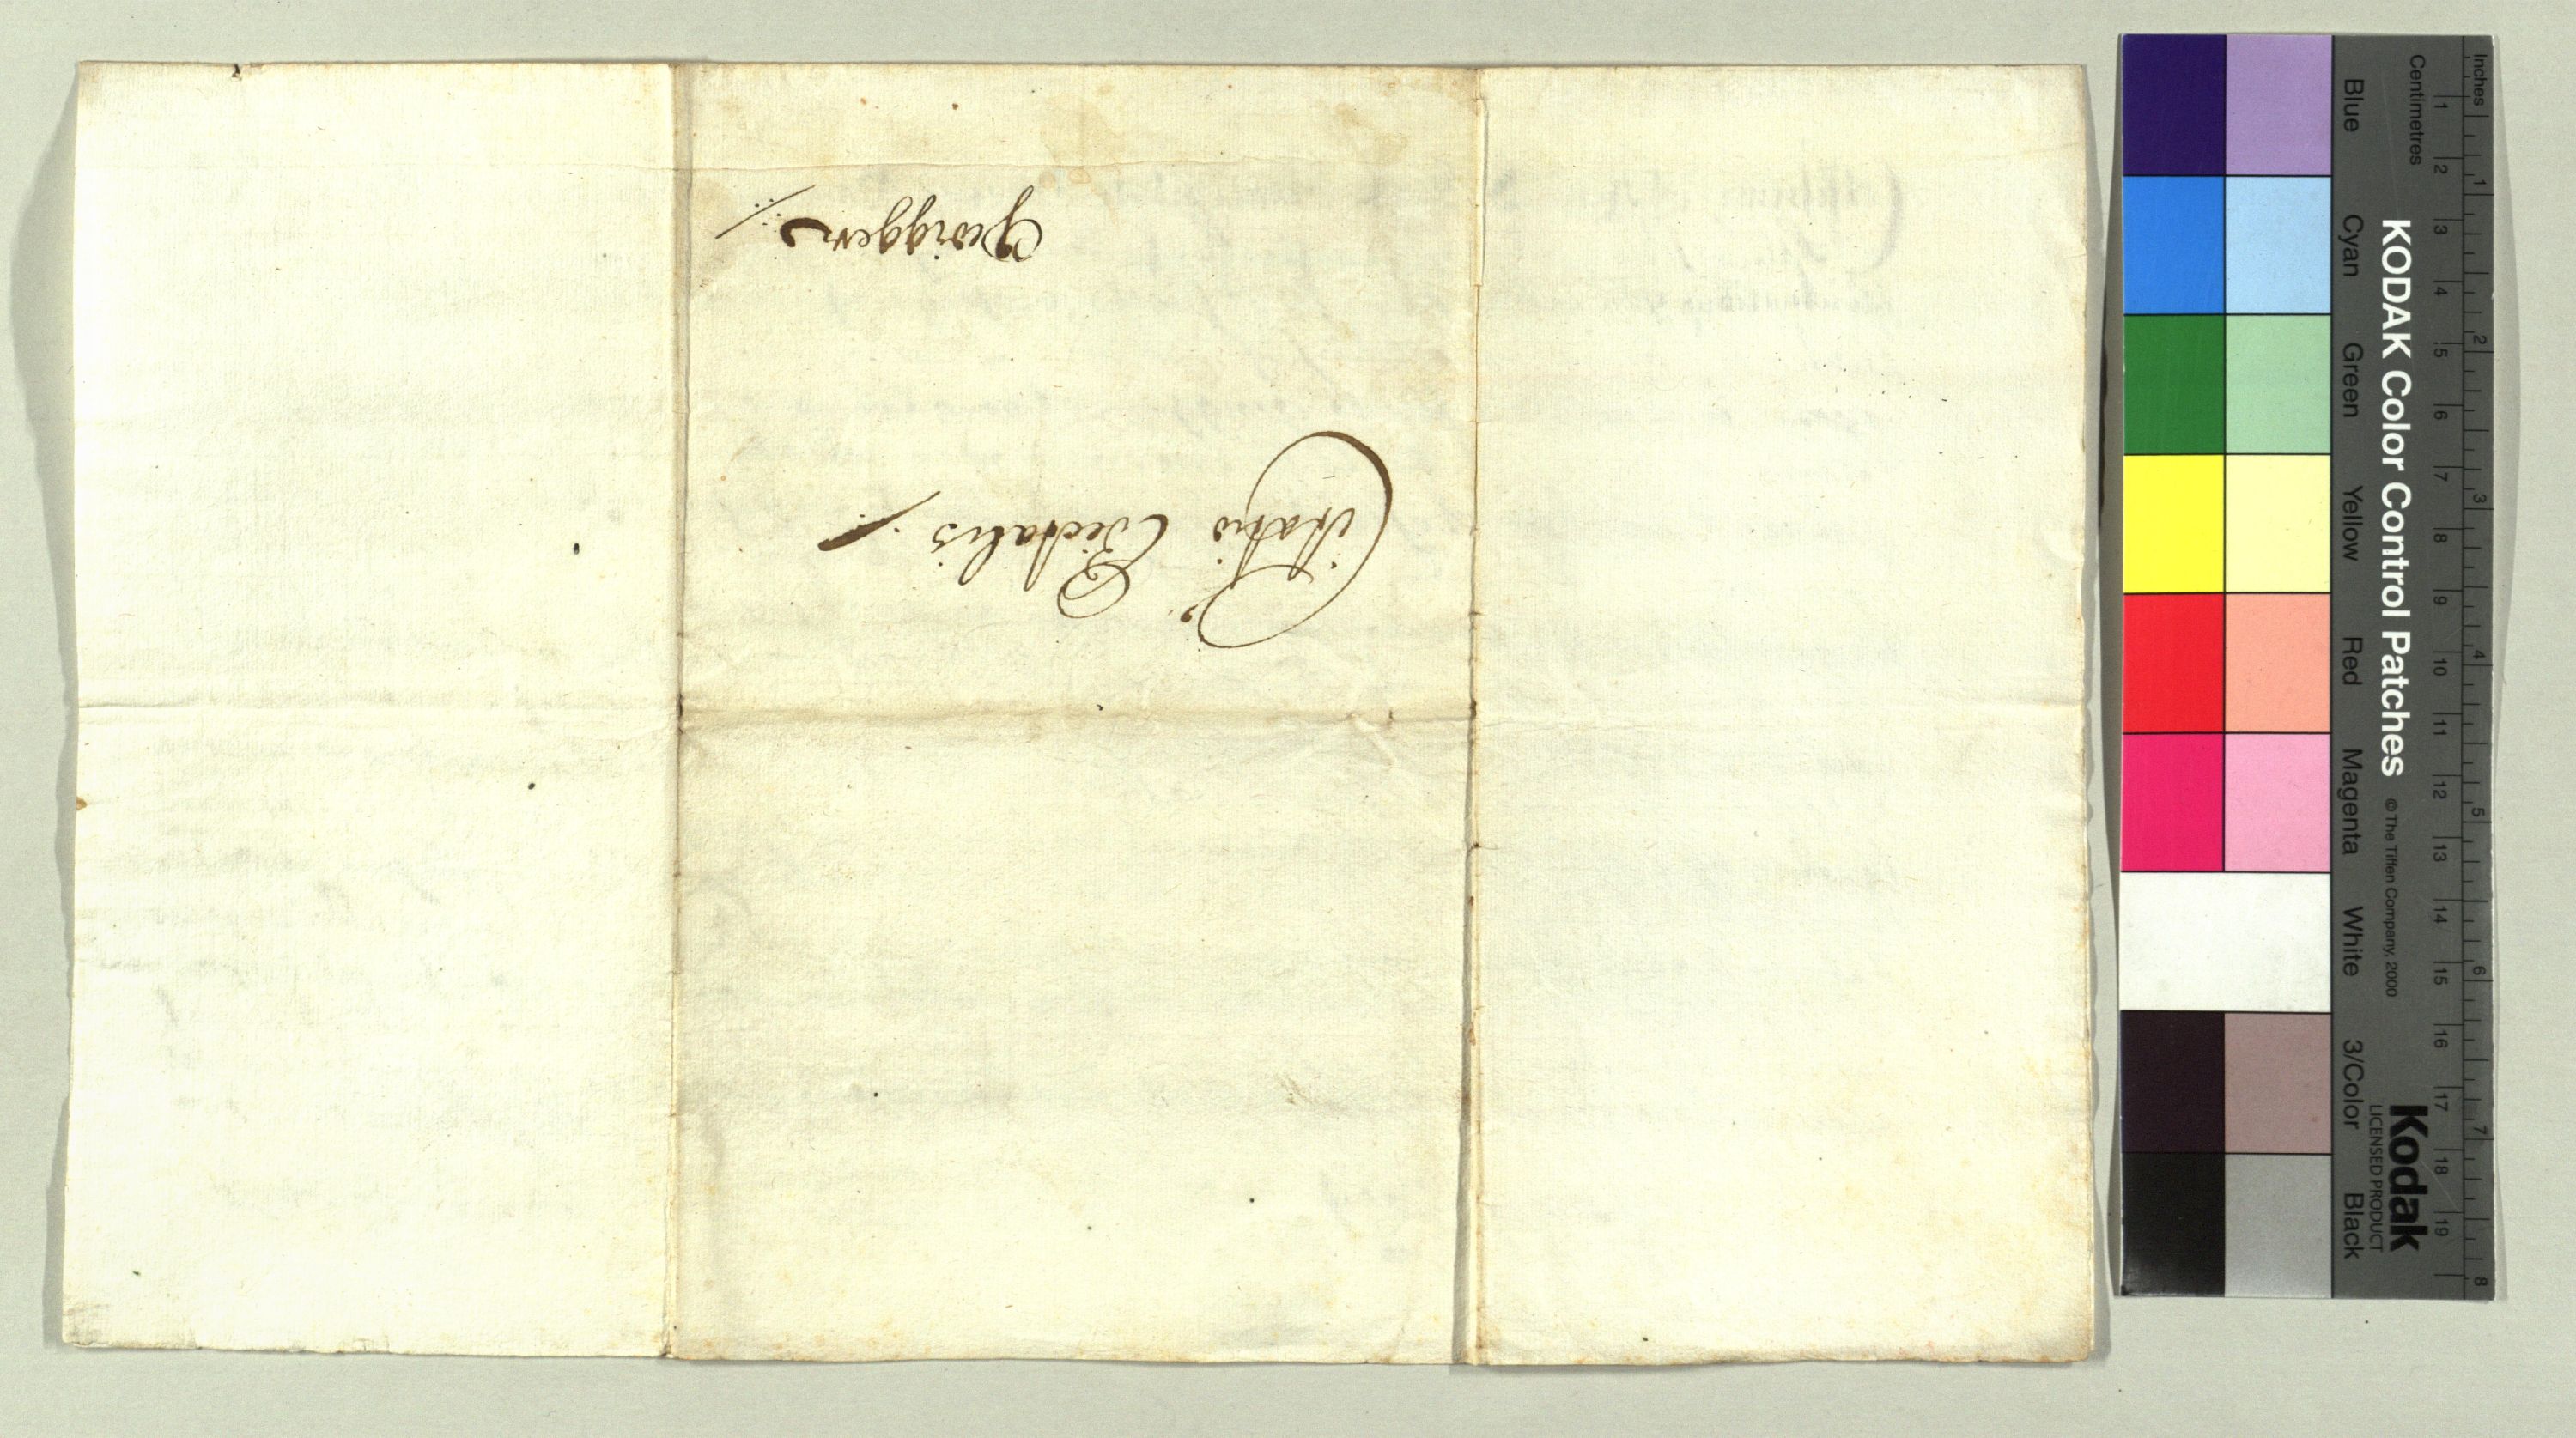 Citatio Edictalis ./.
KODAK Color Control Patches © The Tiffen Company, 2000
Kodak
LICENSED PRODUCT
Inches 1 2 3 4 5 6 7 8
Centimetres 1 2 3 4 5 6 7 8 9 10 11 12 13 14 15 16 17 18 19
Blue Cyan Green Yellow Red Magenta White 3/Color Black